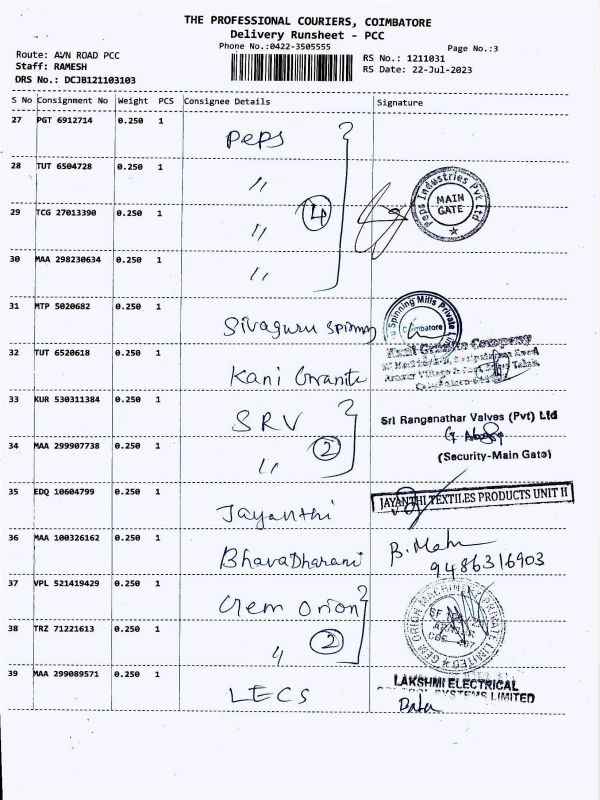 THE PROFESSIONAL COURIERS, COIMBATORE
Delivery Runsheet - PCC
Phone No.:0422-3505555
Page No.:3
Route: AVN ROAD PCC
RS No.: 1211031
Staff: RAMESH
RS Date: 22-Jul-2023
DRS No.: DCJB121103103
S No Consignment No Weight PCS Consignee Details Signature
27 PGT 6912714 0.250 1 Peps
28 TUT 6504728 0.250 1 "
Peps Industries Pvt Ltd
MAIN GATE
29 TCG 27013390 0.250 1 " 4
30 MAA 298230634 0.250 1 "
31 MTP 5020682 0.250 1 Sivaguru Spinning
Spinning Mills Private
Coimbatore
32 TUT 6520618 0.250 1 Kani Granite
Kani Granite Company
33 KUR 530311384 0.250 1 SRV
Sri Ranganathar Valves (Pvt) Ltd
34 MAA 299907738 0.250 1 " 2
(Security-Main Gate)
35 EDQ 10604799 0.250 1 Jayanthi
JAYANTHI TEXTILES PRODUCTS UNIT II
36 MAA 100326162 0.250 1 BhavaDharani
9486316903
37 VPL 521419429 0.250 1 Gem Orion
GEM ORION MACHINERY PRIVATE LIMITED
38 TRZ 71221613 0.250 1 " 2
39 MAA 299089571 0.250 1 LECS
LAKSHMI ELECTRICAL
SYSTEMS LIMITED